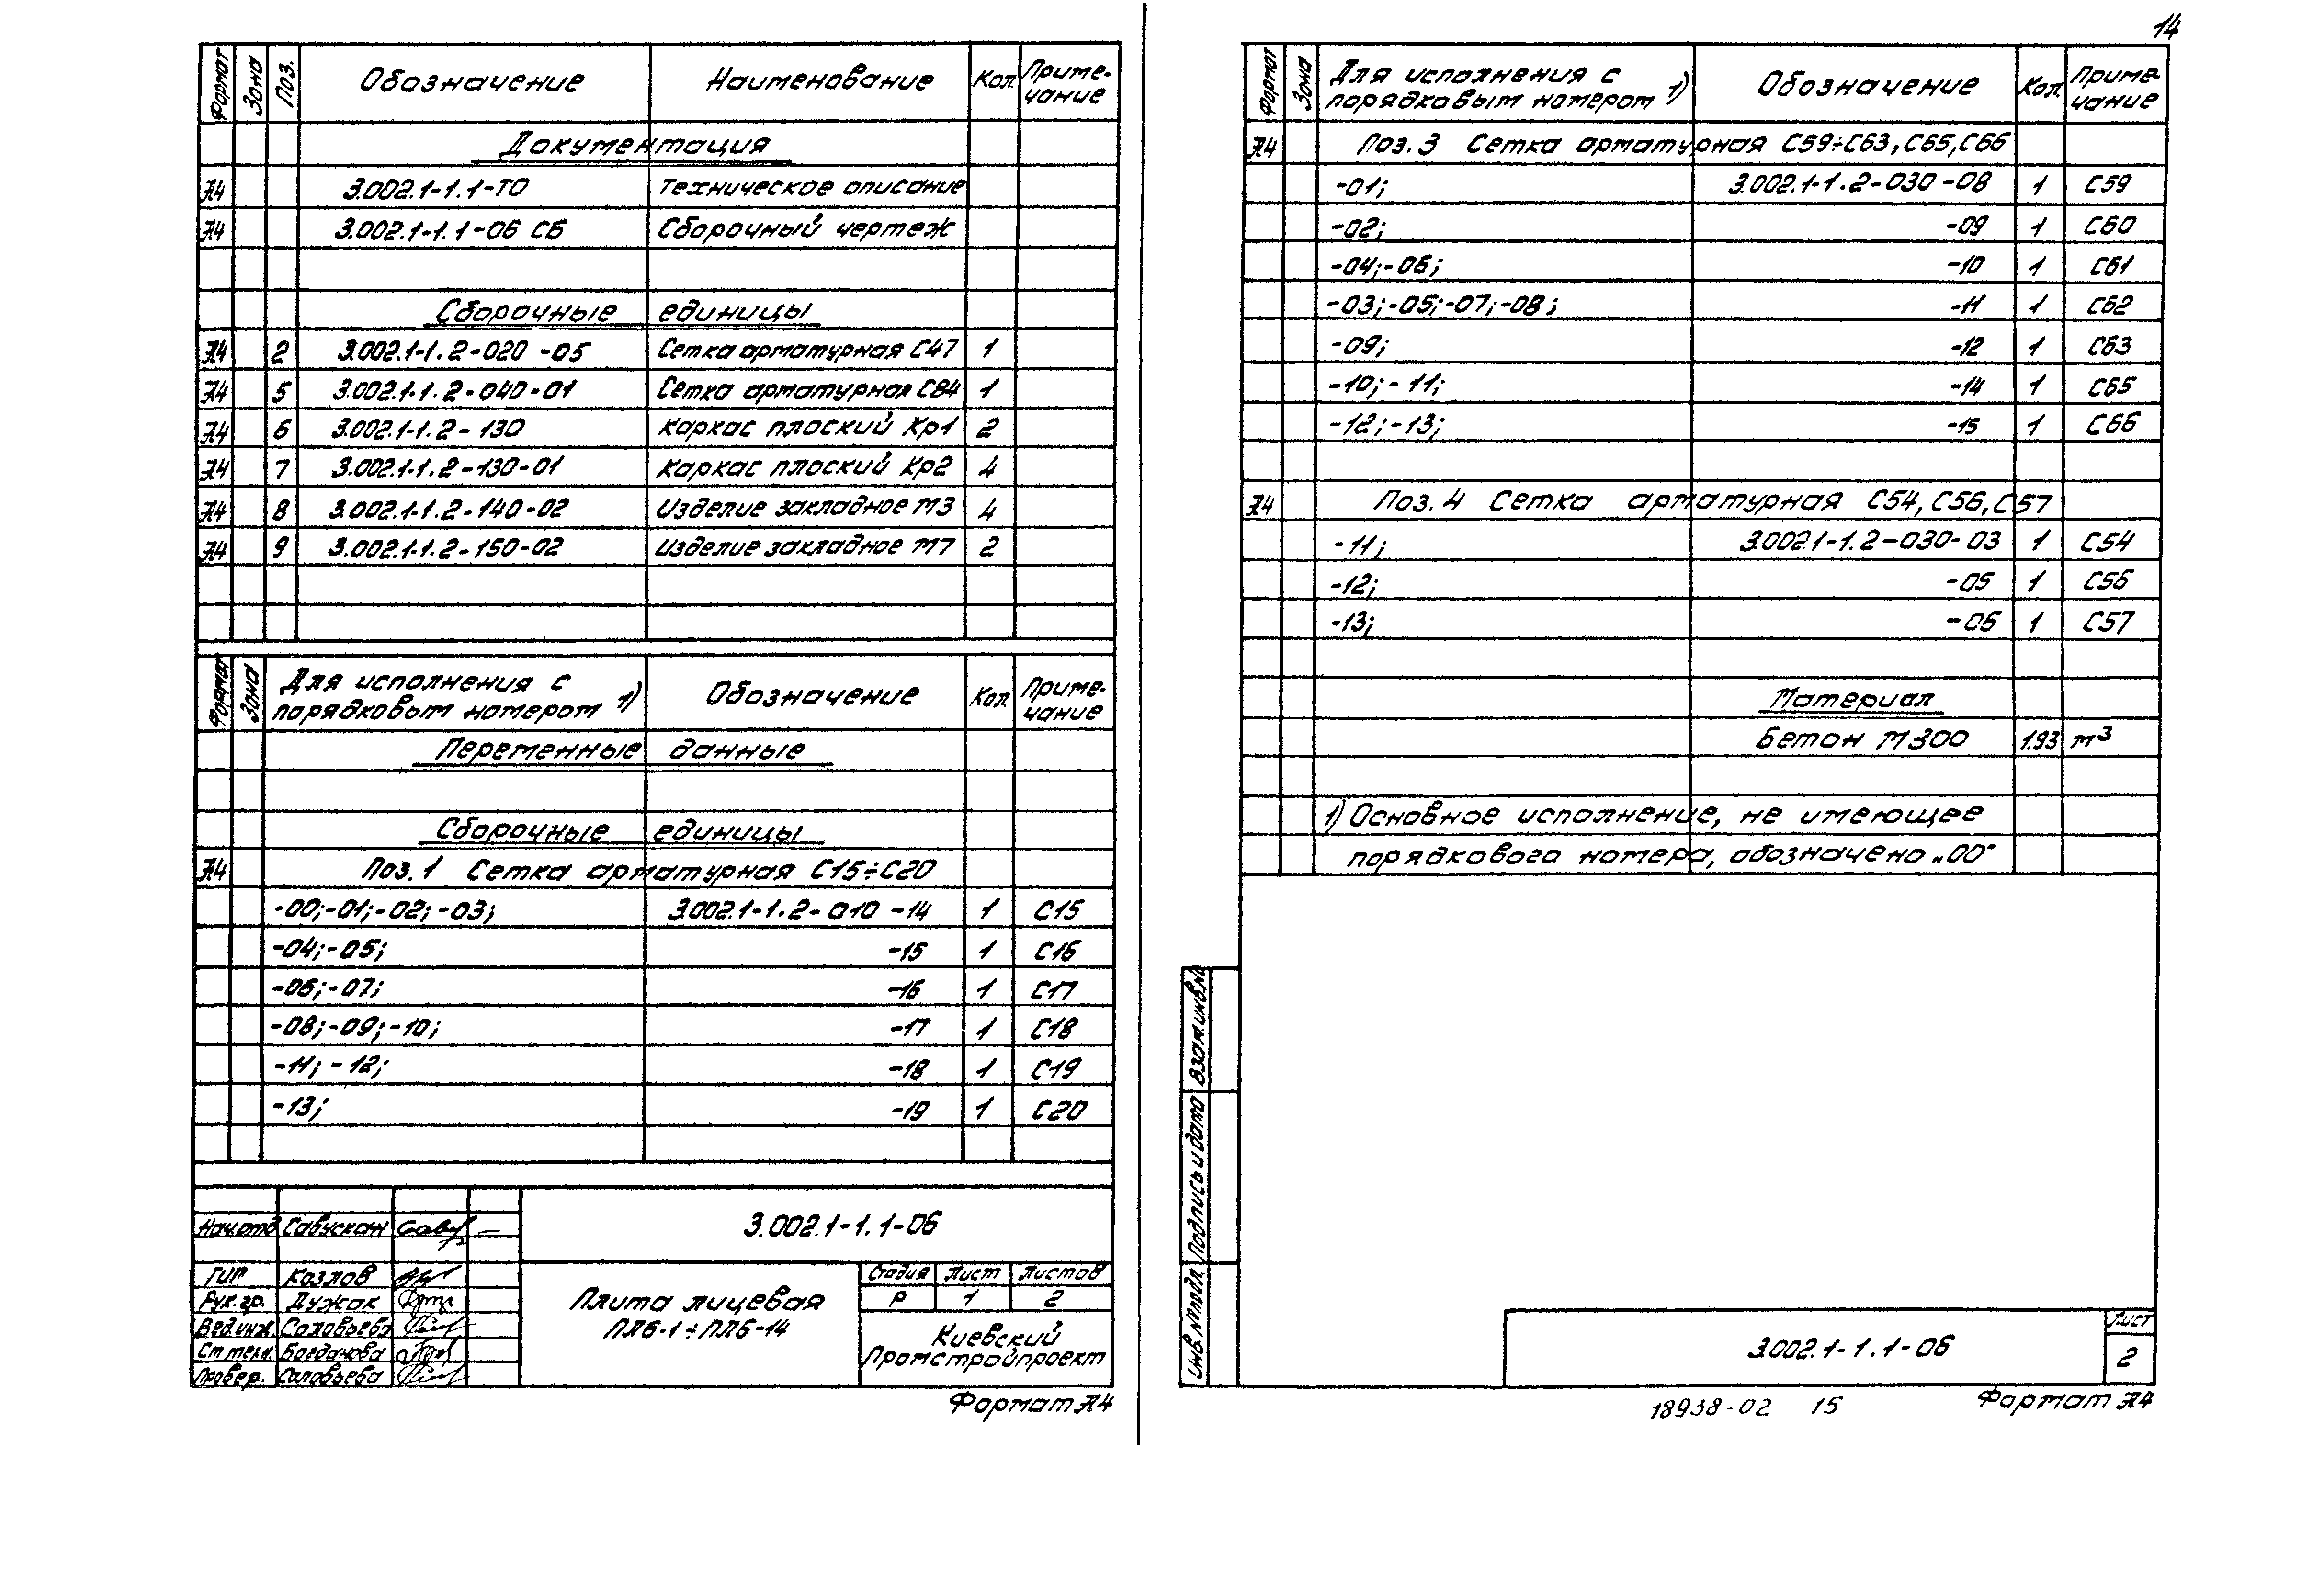 14
Формат Зона Поз. Обозначение Наименование Кол. Приме-
чание
Документация
А4 3.002.1-1.1-ТО Техническое описание
А4 3.002.1-1.1-06 СБ Сборочный чертеж
Сборочные единицы
А4 2 3.002.1-1.2-020-05 Сетка арматурная С47 1
А4 5 3.002.1-1.2-040-01 Сетка арматурная С84 1
А4 6 3.002.1-1.2-130 Каркас плоский Кр1 2
А4 7 3.002.1-1.2-130-01 Каркас плоский Кр2 4
А4 8 3.002.1-1.2-140-02 Изделие закладное М3 4
А4 9 3.002.1-1.2-150-02 Изделие закладное М7 2
Формат Зона Для исполнения с
порядковым номером 1) Обозначение Кол. Приме-
чание
Переменные данные
Сборочные единицы
А4 Поз.1 Сетка арматурная С15÷С20
-00;-01;-02;-03; 3.002.1-1.2-010-14 1 С15
-04;-05; -15 1 С16
-06;-07; -16 1 С17
-08;-09;-10; -17 1 С18
-11;-12; -18 1 С19
-13; -19 1 С20
Нач.отд. Савускан
ГИП Козлов
Рук.гр. Дужак
Вед.инж. Соловьева
Ст.техн. Богданова
Провер. Соловьева
3.002.1-1.1-06
Плита лицевая
ПЛ6-1÷ПЛ6-14
Стадия Лист Листов
Р 1 2
Киевский
Промстройпроект
Формат А4
Формат Зона Для исполнения с
порядковым номером 1) Обозначение Кол. Приме-
чание
А4 Поз.3 Сетка арматурная С59÷С63, С65, С66
-01; 3.002.1-1.2-030-08 1 С59
-02; -09 1 С60
-04;-06; -10 1 С61
-03;-05;-07;-08; -11 1 С62
-09; -12 1 С63
-10;-11; -14 1 С65
-12;-13; -15 1 С66
А4 Поз.4 Сетка арматурная С54, С56, С57
-11; 3.002.1-1.2-030-03 1 С54
-12; -05 1 С56
-13; -06 1 С57
Материал
Бетон М300 1.93 м³
1) Основное исполнение, не имеющее
порядкового номера, обозначено „00"
Взам.инв.№
Подпись и дата
Инв.№подл.
3.002.1-1.1-06
Лист
2
18938-02 15
Формат А4